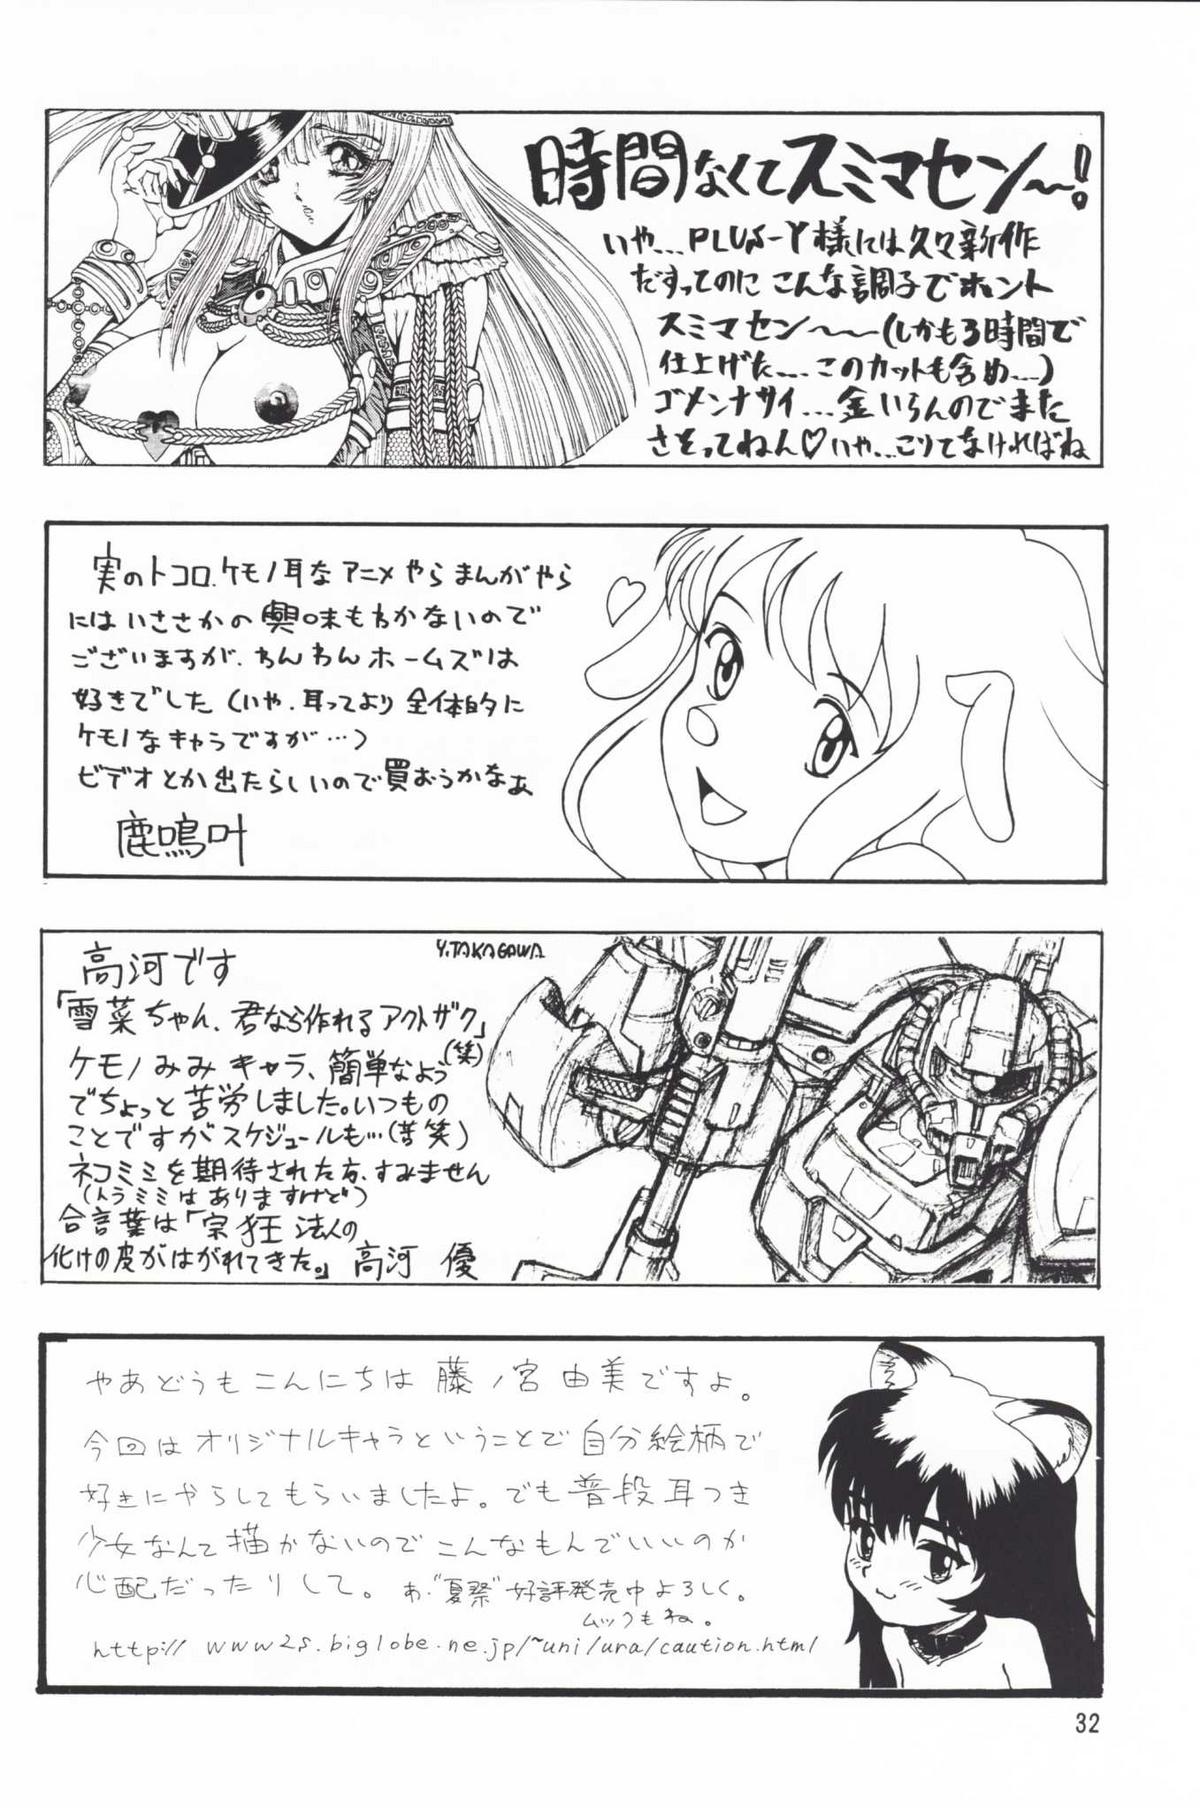 時間なくてスミマセン〜!
いや…PLUS-Y様には久々新作
だすってのに こんな調子でホント
スミマセン〜〜(しかも3時間で
仕上げた……このカットも含め……)
ゴメンナサイ…金いらんのでまた
さそってねん♡いや…こりてなければね
実のトコロ、ケモノ耳なアニメやらまんがやら
にはいささかの興味もわかないので
ございますが、わんわんホームズは
好きでした(いや、耳ってより全体的に
ケモノなキャラですが…)
ビデオとか出たらしいので買おうかなぁ
鹿鳴叶
高河です
Y.TAKAGAWA
「雪菜ちゃん、君なら作れるアクトザク」
(笑)
ケモノみみキャラ、簡単なよう
でちょっと苦労しました。いつもの
ことですがスケジュールも…(苦笑)
ネコミミを期待された方、すみません
(トラミミはありますけど)
合言葉は「宗狂法人の
化けの皮がはがれてきた。」 高河 優
やあどうもこんにちは 藤ノ宮由美ですよ。
今回はオリジナルキャラということで自分絵柄で
好きにやらしてもらいましたよ。でも普段耳つき
少女なんて描かないのでこんなもんでいいのか
心配だったりして。あ、"夏祭"好評発売中よろしく。
ムックもね。
http://www2s.biglobe.ne.jp/~uni/ura/caution.html
32